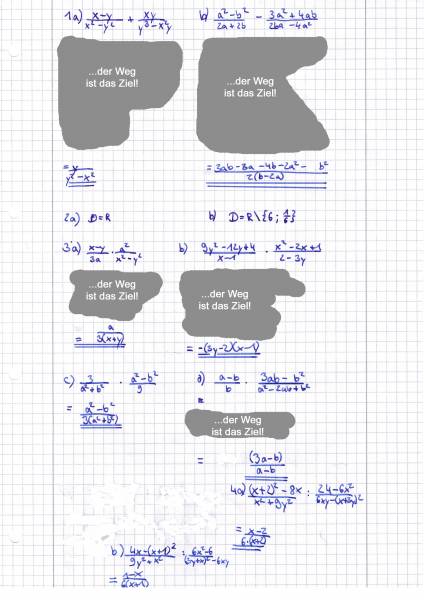 1a) (x-y)/(x²-y²) + (xy)/(y³-x²y)
b) (a²-b²)/(2a+2b) - (3a²+4ab)/(2ba-4a²)
...der Weg
ist das Ziel!
...der Weg
ist das Ziel!
= y/(y²-x²)
= (2ab-8a-4b-2a²-b²)/(2(b-2a))
2a) D=R
b) D=R\{6; 1/6}
3a) (x-y)/(3a) · a²/(x²-y²)
b) (9y²-12y+4)/(x-1) · (x²-2x+1)/(2-3y)
...der Weg
ist das Ziel!
...der Weg
ist das Ziel!
= a/(3(x+y))
= -(3y-2)(x-1)
c) 3/(a²+b²) · (a²-b²)/9
d) (a-b)/b · (3ab-b²)/(a²-2ab+b²)
= (a²-b²)/(3(a²+b²))
=
...der Weg
ist das Ziel!
= (3a-b)/(a-b)
4a) ((x+2)²-8x)/(x²+9y²) : (24-6x²)/(6xy-(x+3y)²)
= (x-2)/(6·(x+2))
b) (4x-(x+1)²)/(9y²+x²) : (6x²-6)/((3y+x)²-6xy)
= (1-x)/(6(x+1))